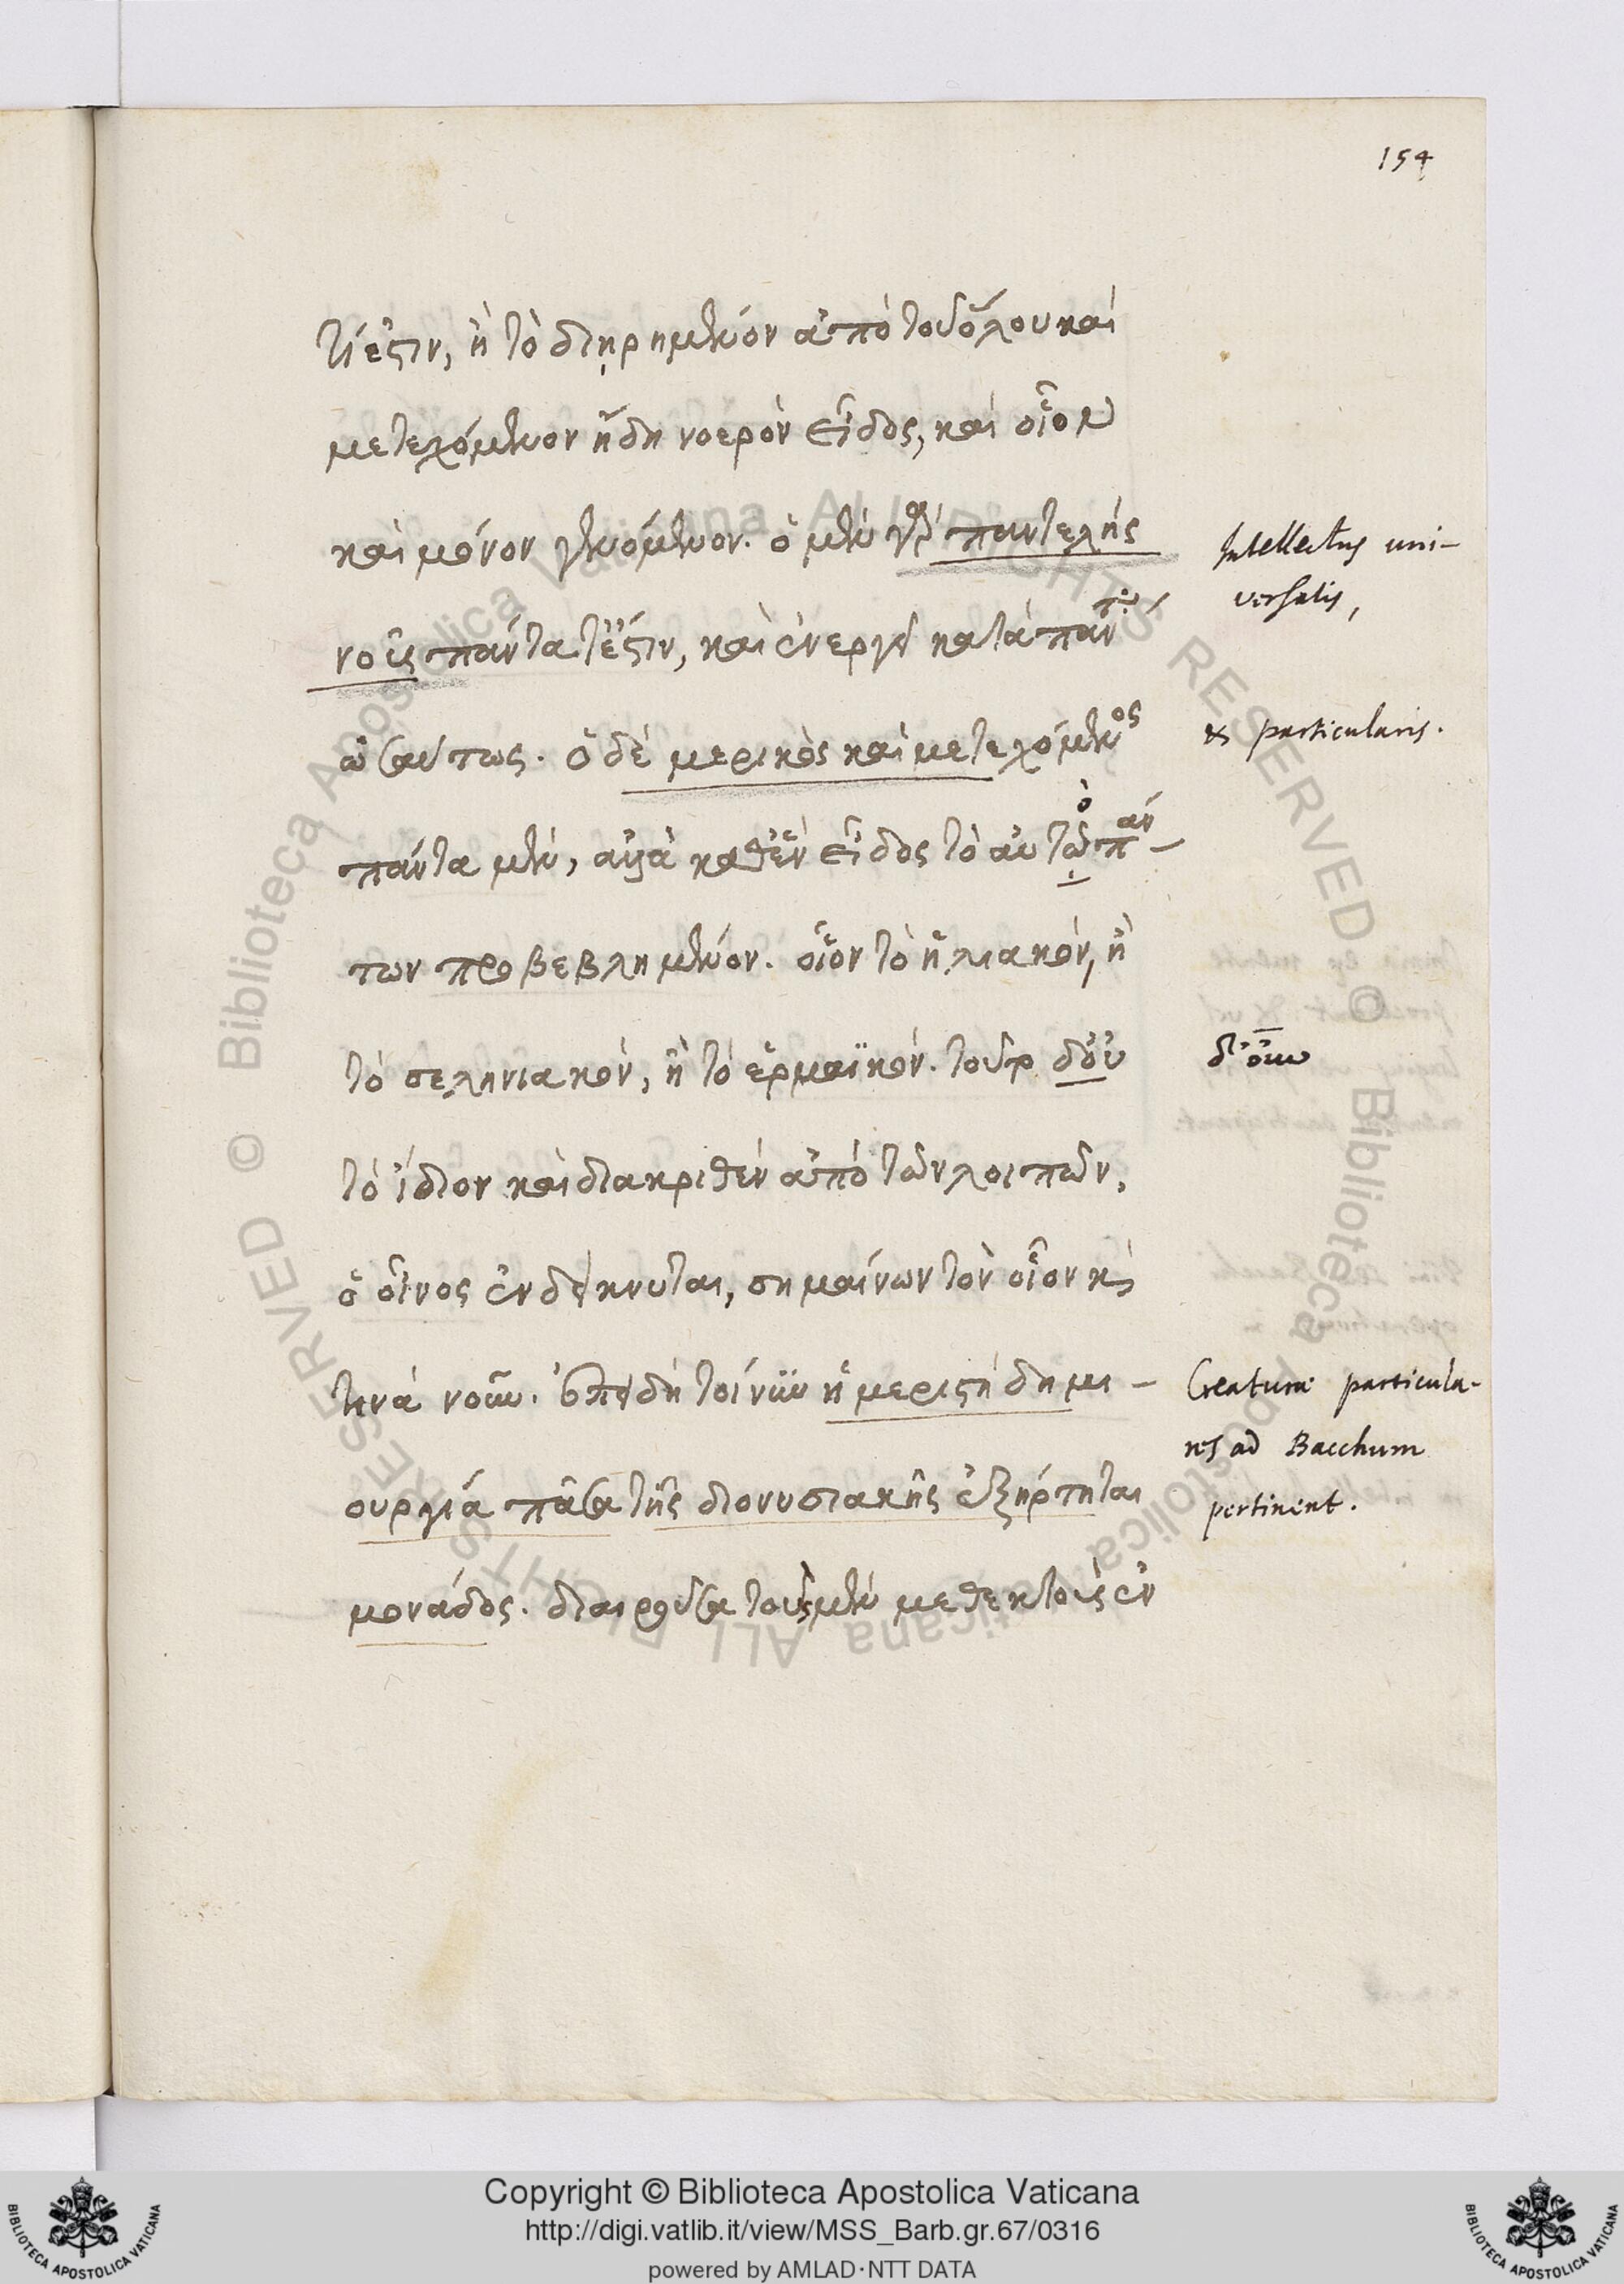 154
τί ἐστιν, ἢ τὸ διῃρημένον ἀπὸ τοῦ ὅλου καὶ
μετεχόμενον ἤδη νοερὸν εἶδος, καὶ οἷον
καὶ μόνον γενόμενον. ὁ μὲν γὰρ παντελὴς
νοῦς πάντα τέ ἐστιν, καὶ ἐνεργεῖ κατὰ πάντα
ὡσαύτως. ὁ δὲ μερικὸς καὶ μετεχόμενος
πάντα μὲν, ἀλλὰ καθ' ἓν εἶδος τὸ αὐτῷ πάν-
των προβεβλημένον. οἷον τὸ ἡλιακόν, ἢ
τὸ σεληνιακόν, ἢ τὸ ἑρμαϊκόν. τοῦτο δ' οὐ
τὸ ἴδιον καὶ διακριθὲν ἀπὸ τῶν λοιπῶν,
ὁ οἶνος ἐνδείκνυται, σημαίνων τὸν οἷον καὶ
τινὰ νοῦν. ἐπειδὴ τοίνυν ἡ μεριστὴ δημι-
ουργία πᾶσα τῆς διονυσιακῆς ἐξήρτηται
μονάδος. διαιροῦσα τοὺς μὲν μεθεκτοὺς ἐν
Intellectus uni-
versalis,
& particularis.
Creaturæ particula-
res ad Bacchum
pertinent.
© Biblioteca Apostolica Vaticana ALL RIGHTS RESERVED © Biblioteca Apostolica Vaticana ALL RIGHTS RESERVED
Copyright © Biblioteca Apostolica Vaticana
http://digi.vatlib.it/view/MSS_Barb.gr.67/0316
powered by AMLAD·NTT DATA
BIBLIOTECA APOSTOLICA VATICANA
BIBLIOTECA APOSTOLICA VATICANA